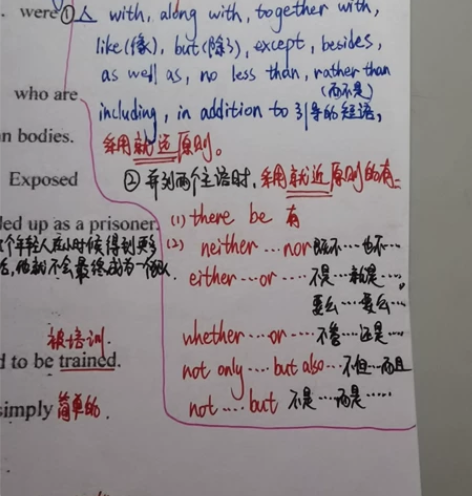 . were ① 人 with, along with, together with,
like(像), but(除了), except, besides,
as well as, no less than, rather than
(而不是)
who are
including, in addition to 引导的短语,
n bodies.
采用就远原则。
Exposed
② 并列两个主语时, 采用就近原则的有:
led up as a prisoner.
(1) there be 有
个年轻人在小时候得到更多
(2) neither ... nor 既不...也不...
他就不会最终成为一个
either ... or .... 不是...就是....
要么...要么...
whether ... or .... 不管...还是....
被培训.
d to be trained.
not only .... but also ... 不但...而且
not .... but 不是...而是.....
simply 简单的.